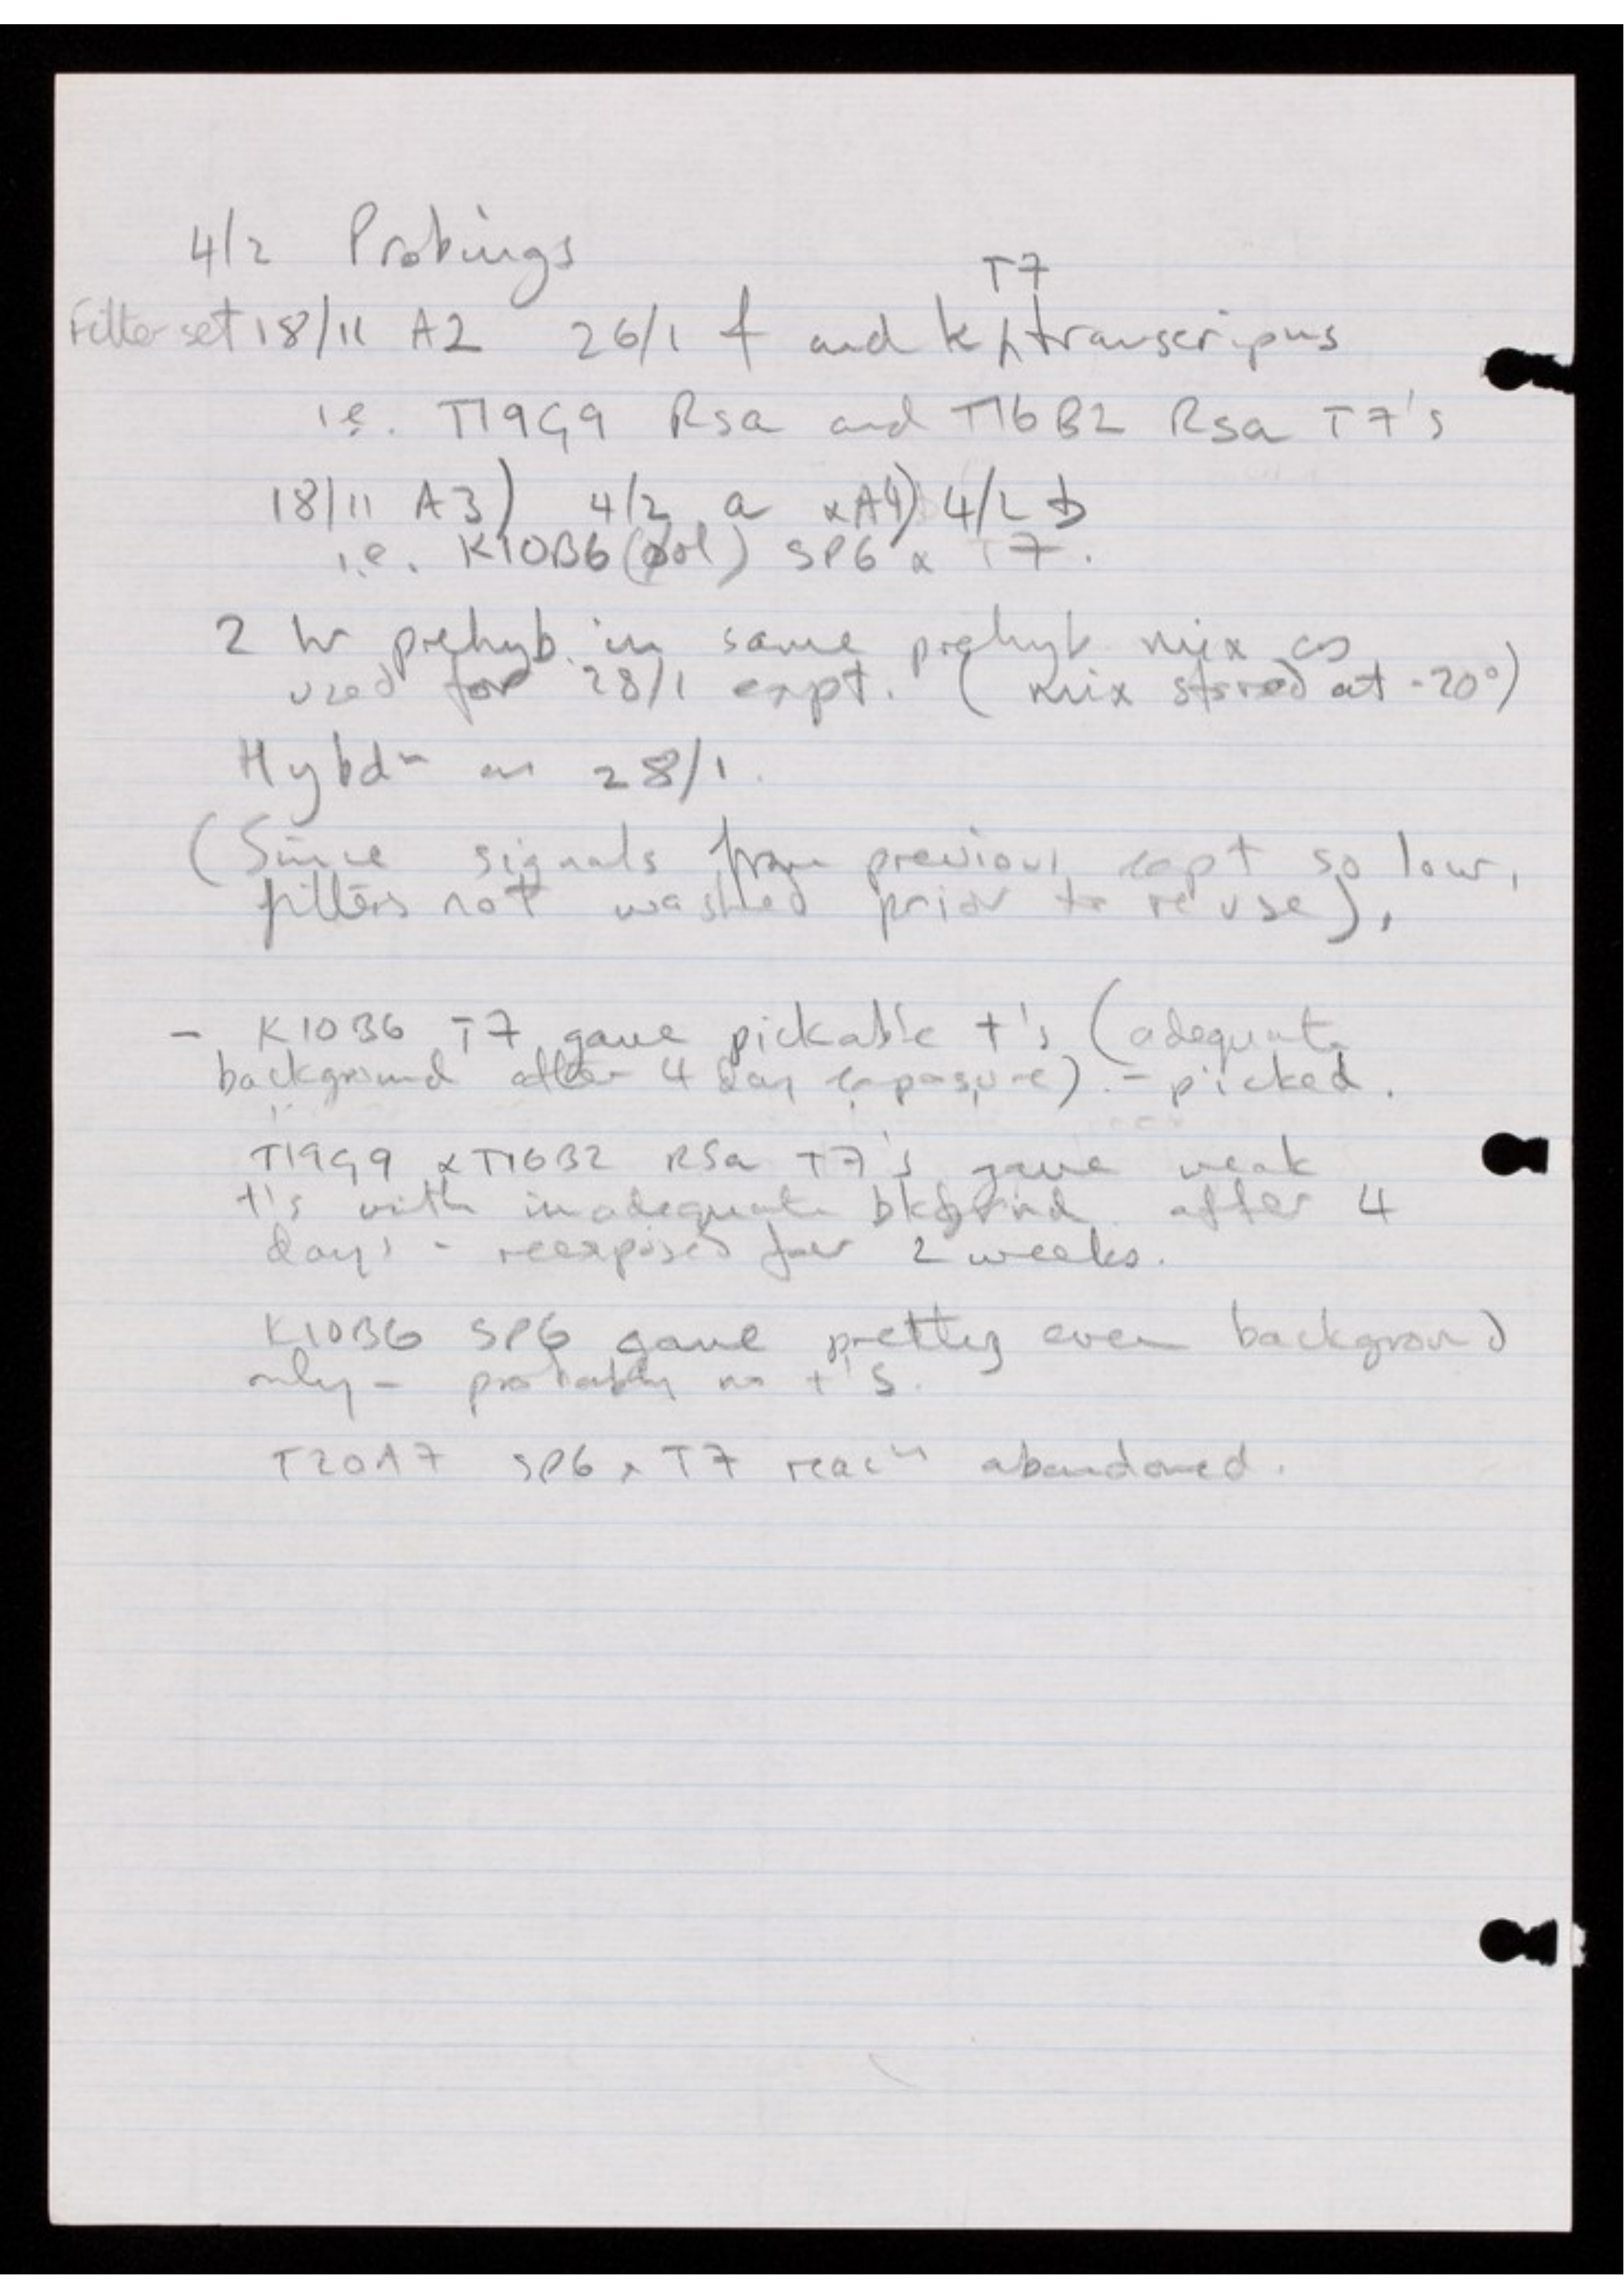 4/2 Probings
Filter set 18/11 A2 26/1 f and k T7 transcripns
i.e. T19G9 Rsa and T16B2 Rsa T7's
18/11 A3) 4/2 a & A4) 4/2 b
i.e. K10B6 (pol) SP6 & T7.
2 hr prehyb. in same prehyb mix as
used for 28/1 expt. (mix stored at -20°)
Hybdn as 28/1.
(Since signals from previous expt so low,
filters not washed prior to reuse).
- K10B6 T7 gave pickable +'s (adequate
background after 4 day exposure). - picked.
T19G9 & T16B2 RSa T7's gave weak
+'s with inadequate bkgrnd after 4
days - reexposed for 2 weeks.
K10B6 SP6 gave pretty even background
only - probably no +'s.
T20A7 SP6 & T7 reacns abandoned.